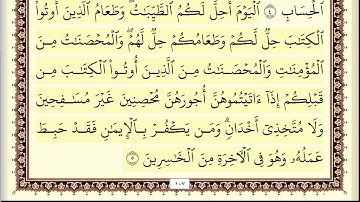 ٱلْحِسَابِ ٤ ٱلْيَوْمَ أُحِلَّ لَكُمُ ٱلطَّيِّبَٰتُ ۖ وَطَعَامُ ٱلَّذِينَ أُوتُوا۟
ٱلْكِتَٰبَ حِلٌّ لَّكُمْ وَطَعَامُكُمْ حِلٌّ لَّهُمْ ۖ وَٱلْمُحْصَنَٰتُ مِنَ
ٱلْمُؤْمِنَٰتِ وَٱلْمُحْصَنَٰتُ مِنَ ٱلَّذِينَ أُوتُوا۟ ٱلْكِتَٰبَ مِن
قَبْلِكُمْ إِذَآ ءَاتَيْتُمُوهُنَّ أُجُورَهُنَّ مُحْصِنِينَ غَيْرَ مُسَٰفِحِينَ
وَلَا مُتَّخِذِىٓ أَخْدَانٍ ۗ وَمَن يَكْفُرْ بِٱلْإِيمَٰنِ فَقَدْ حَبِطَ
عَمَلُهُۥ وَهُوَ فِى ٱلْءَاخِرَةِ مِنَ ٱلْخَٰسِرِينَ ٥
١٠٧